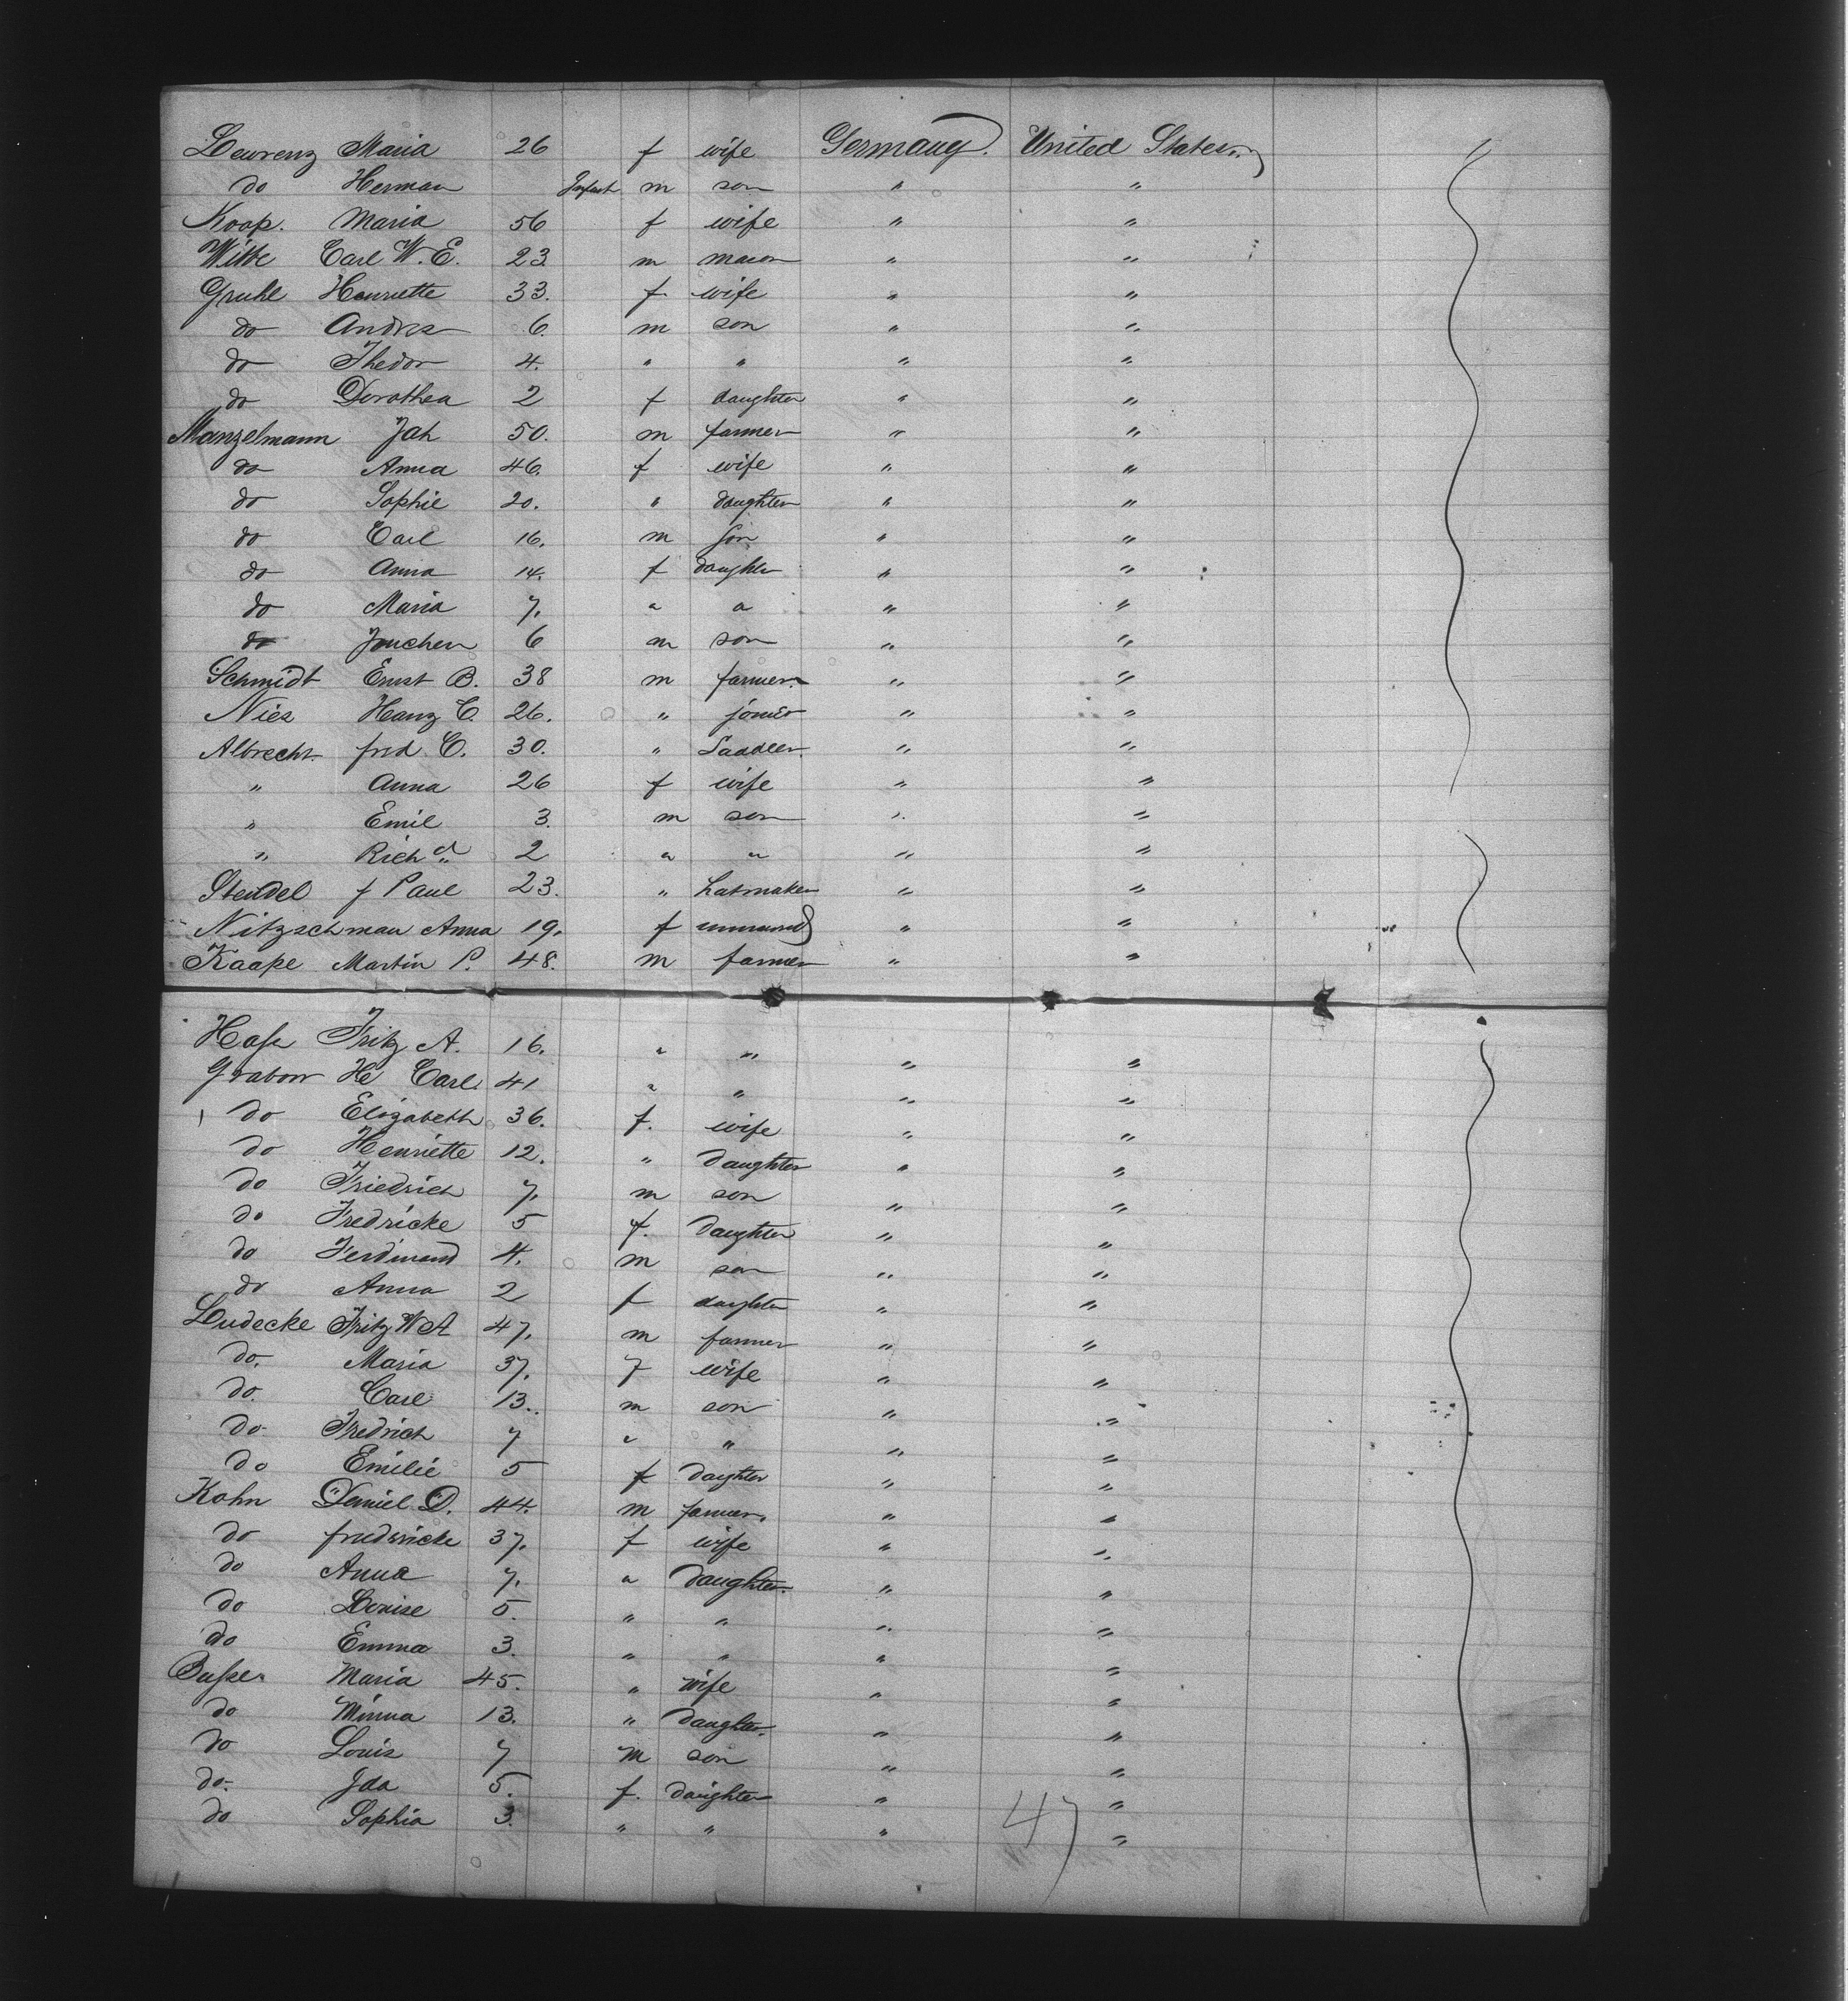 Lewrenz Maria 26 f wife Germany. United States
do Herman Infant m son " "
Koop. Maria 56 f wife " "
Witte Carl W. E. 23 m mason " "
Gruhl Henriette 33. f wife " "
do Andres 6. m son " "
do Thedor 4. " " " "
do Dorothea 2 f daughter " "
Manzelmann Joh 50. m farmer " "
do Anna 46. f wife " "
do Sophie 20. " daughter " "
do Carl 16. m son " "
do Anna 14. f daughter " "
do Maria 7. " " " "
do Jouchen 6 m son " "
Schmidt Ernst B. 38 m farmer " "
Nies Hanz C. 26. " joiner " "
Albrecht fred C. 30. " Saddler " "
" Anna 26 f wife " "
" Emil 3. m son " "
" Richd 2 " " " "
Steudel f Paul 23. " hatmaker " "
Nitzschman Anna 19. f " "
Kaape Martin P. 48. m farmer " "
Hase Fritz A. 16. " " " "
Grabow He Carl 41 " " " "
do Elizabeth 36. f. wife " "
do Henriette 12. " daughter " "
do Friedrich 7. m son " "
do Fredricke 5 f. daughter " "
do Ferdinand 4. m son " "
do Anna 2 f daughter " "
Ludecke Fritz W A 47. m farmer " "
do. Maria 37. f wife " "
do. Carl 13. m son " "
do. Fredrich 7 " " " "
do Emilie 5 f daughter " "
Kohn Daniel D. 44. m farmer. " "
do fredricke 37. f wife " "
do Anna 7. " daughter. " "
do Louise 5. " " " "
do Emma 3. " " " "
Busse Maria 45. " wife " "
do Minna 13. " daughter. " "
do Louis 7 m son " "
do. Ida 5. f. daughter " "
do Sophia 3. " " " "
47